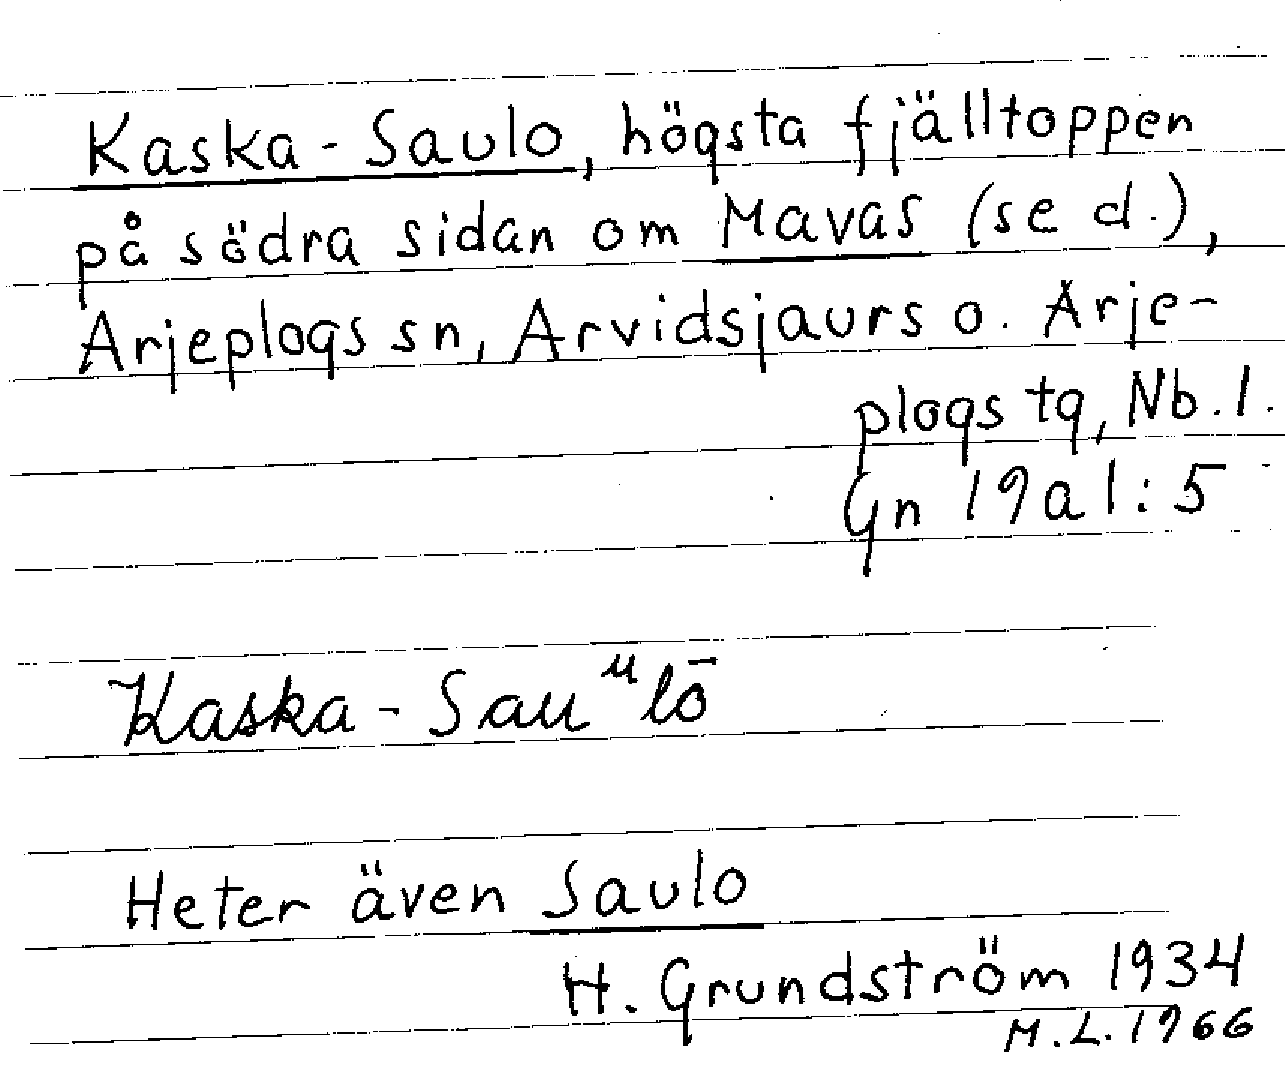 Kaska-Saulo, högsta fjälltoppen
på södra sidan om Mavas (se d.),
Arjeplogs sn, Arvidsjaurs o. Arje-
plogs tg, Nb. l.
Gn 19a1:5
Kaska-Sauᵘlō
Heter även Saulo
H. Grundström 1934
M.L. 1966